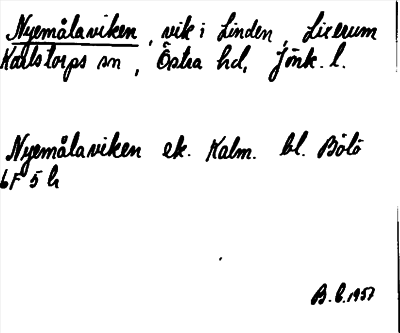 Nyemålaviken, vik i Linden, Lixerum
Karlstorps sn, Östra hd, Jönk. l.
Nyemålaviken ek. Kalm. bl. Bölö
6F 5 h
B.b. 1957